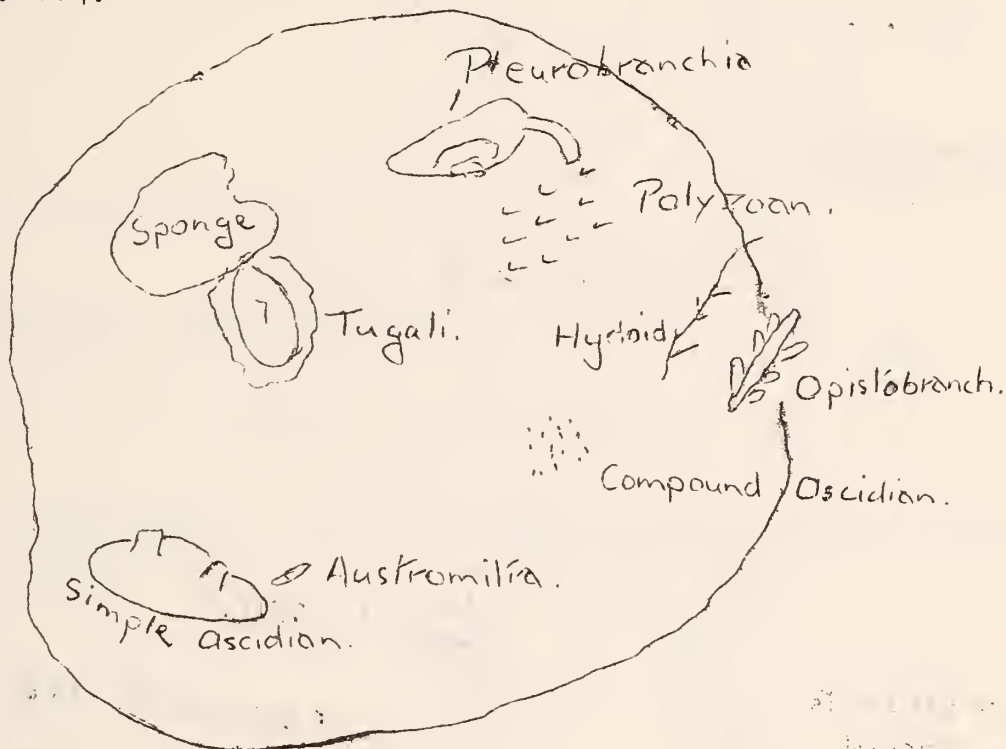 Pleurobranchia
Polyzoan.
Sponge
Tugali.
Hydoid
Opistobranch.
Compound Ascidian.
Austromitra.
Simple Ascidian.